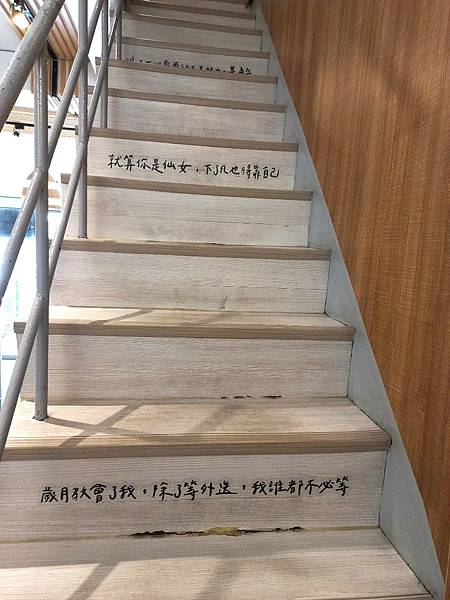 就算你是仙女，下凡也得靠自己
歲月教會了我，除了等外送，我誰都不必等